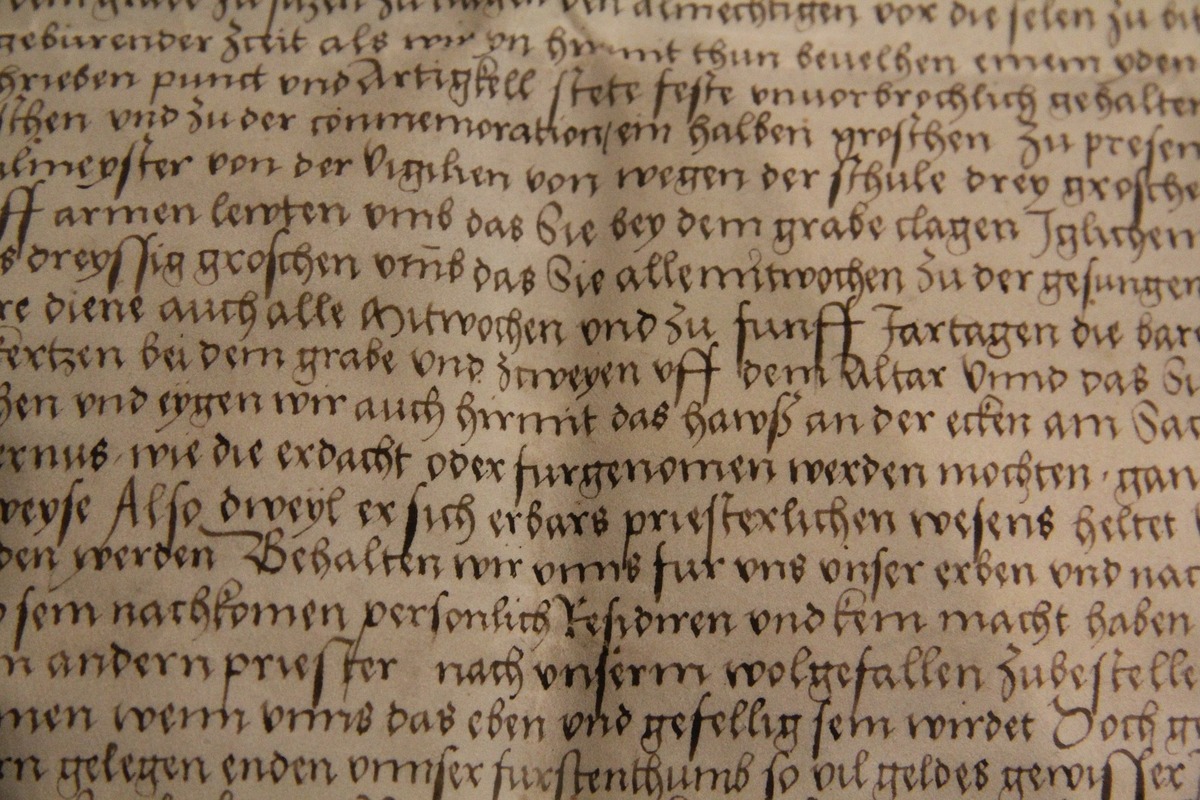 grabe zu sitzen zu almechtigen vor die selen zu
geburender zceit als wir yn hirmit thun bevelhen einem yden
hrieben punct und Artigkell stete feste unvorbrochlich gehalten
schen und zu der commemoration / ein halben groschen zu presen
ulmeyster von der Vigilien von wegen der schule drey grosche
ff armen lewten umb das Sie bey dem grabe clagen Iglichem
s dreyssig groschen umb das Sie alle mitwochen zu der gesungen
re diene auch alle Mitwochen und zu funff Jartagen die bar
kertzen bei dem grabe und zcweyen uff dem Altar Unnd das Si
hen und eygen wir auch hirmit das hawß an der ecken am Sac
ernus · wie die erdacht oder furgenomen werden mochten · gan
weyse Also dweyl er sich erbars priesterlichen wesens heltet
den werden Behalten wir unns fur uns unser erben und nac
sein nachkomen personlich Residiren und kein macht haben
n andern priester nach unserm wolgefallen zubestelle
men wenn unns das eben und gefellig sein wirdet Doch g
rn gelegen enden unnser furstenthumb so vil geldes gewisser